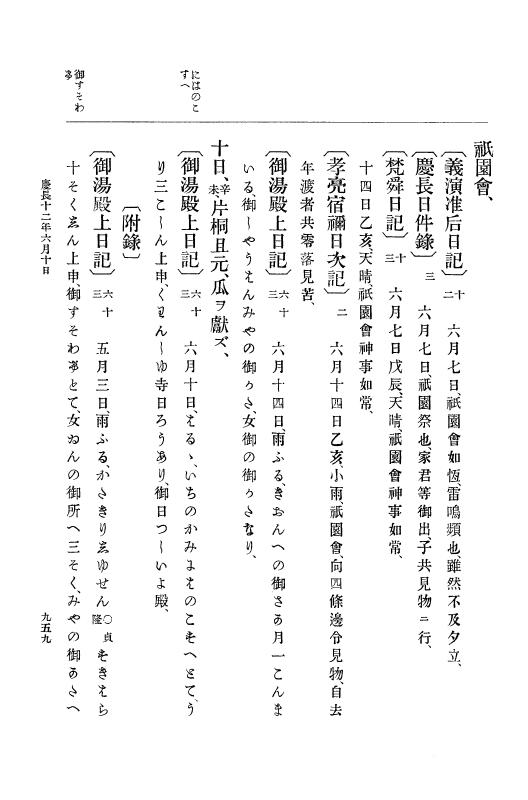 祇園會、
〔義演准后日記〕十二 六月七日、祇園會如恆、雷鳴頻也、雖然不及夕立、
〔慶長日件錄〕三 六月七日、祇園祭也、家君等御出、子共見物ニ行、
〔梵舜日記〕十三 六月七日戊辰、天晴、祇園會神事如常、
十四日乙亥、天晴、祇園會神事如常、
〔孝亮宿禰日次記〕二 六月十四日乙亥、小雨、祇園會、向四條邊令見物、自去
年渡者共零落見苦、
〔御湯殿上日記〕六十三 六月十四日、雨ふる、きおんへの御さか月一こんま
いる、御しやうえんみやの御かた、女御の御かたなり、
十日、辛未、片桐且元、瓜ヲ獻ズ、
〔御湯殿上日記〕六十三 六月十日、はるゝ、いちのかみよりはのこすへとてう
り三こしん上申、くわんしゆ寺日ろうあり、御日つしいよ殿、
〔附錄〕
〔御湯殿上日記〕六十三 五月三日、雨ふる、かたきりしゆせん○貞隆 そきたら
十そくしん上申、御すそわけとて、女ゐんの御所へ三そく、みやの御かたへ
にはのこすへ
御すそわけ
慶長十二年六月十日
九五九